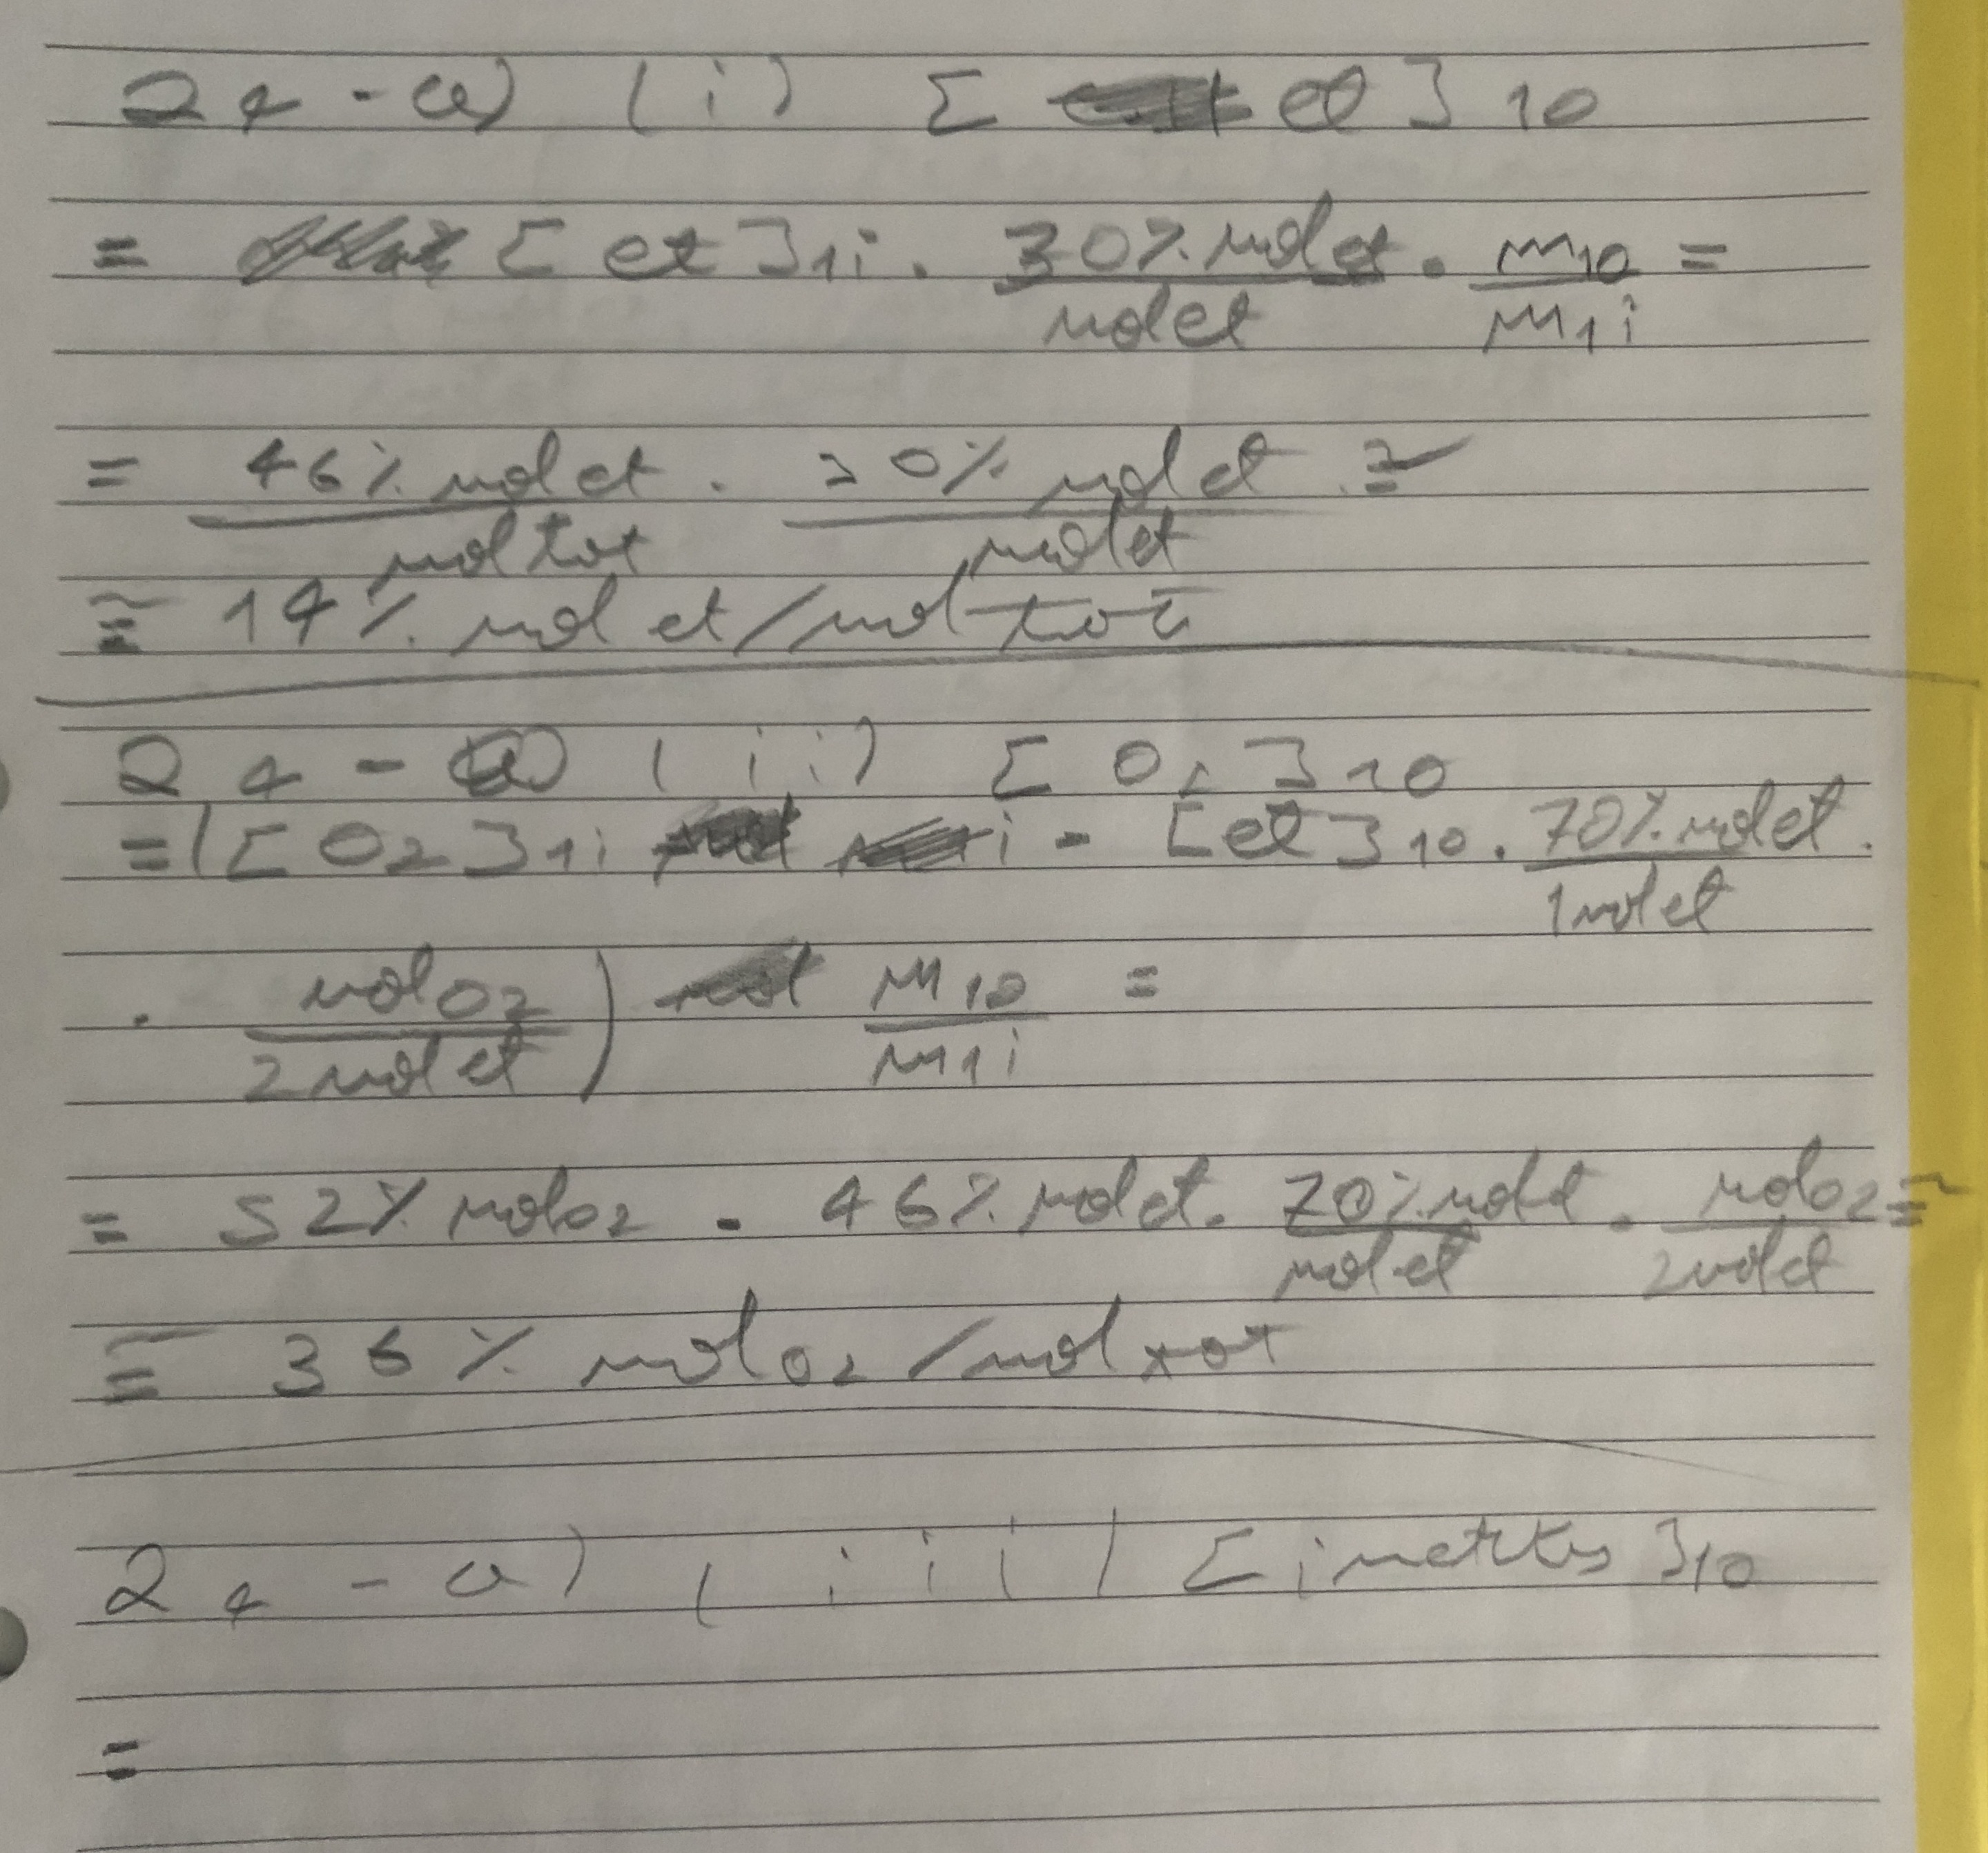 24 - a) (i) [ et ] 10
= [ et ] 1i . 30% mol et / mol et . m10 / m1i =
= 46% mol et / mol tot . 30% mol et / mol et ≅
≅ 14% mol et / mol tot
24 - a) (ii) [ O2 ] 10
= ( [ O2 ] 1i - [ et ] 10 . 70% mol et / 1 mol et .
. mol O2 / 2 mol et ) m10 / m1i =
= 52% mol O2 - 46% mol et . 70% mol et / mol et . mol O2 / 2 mol et ≅
≅ 36% mol O2 / mol tot
24 - a) (iii) [ inertes ] 10
=